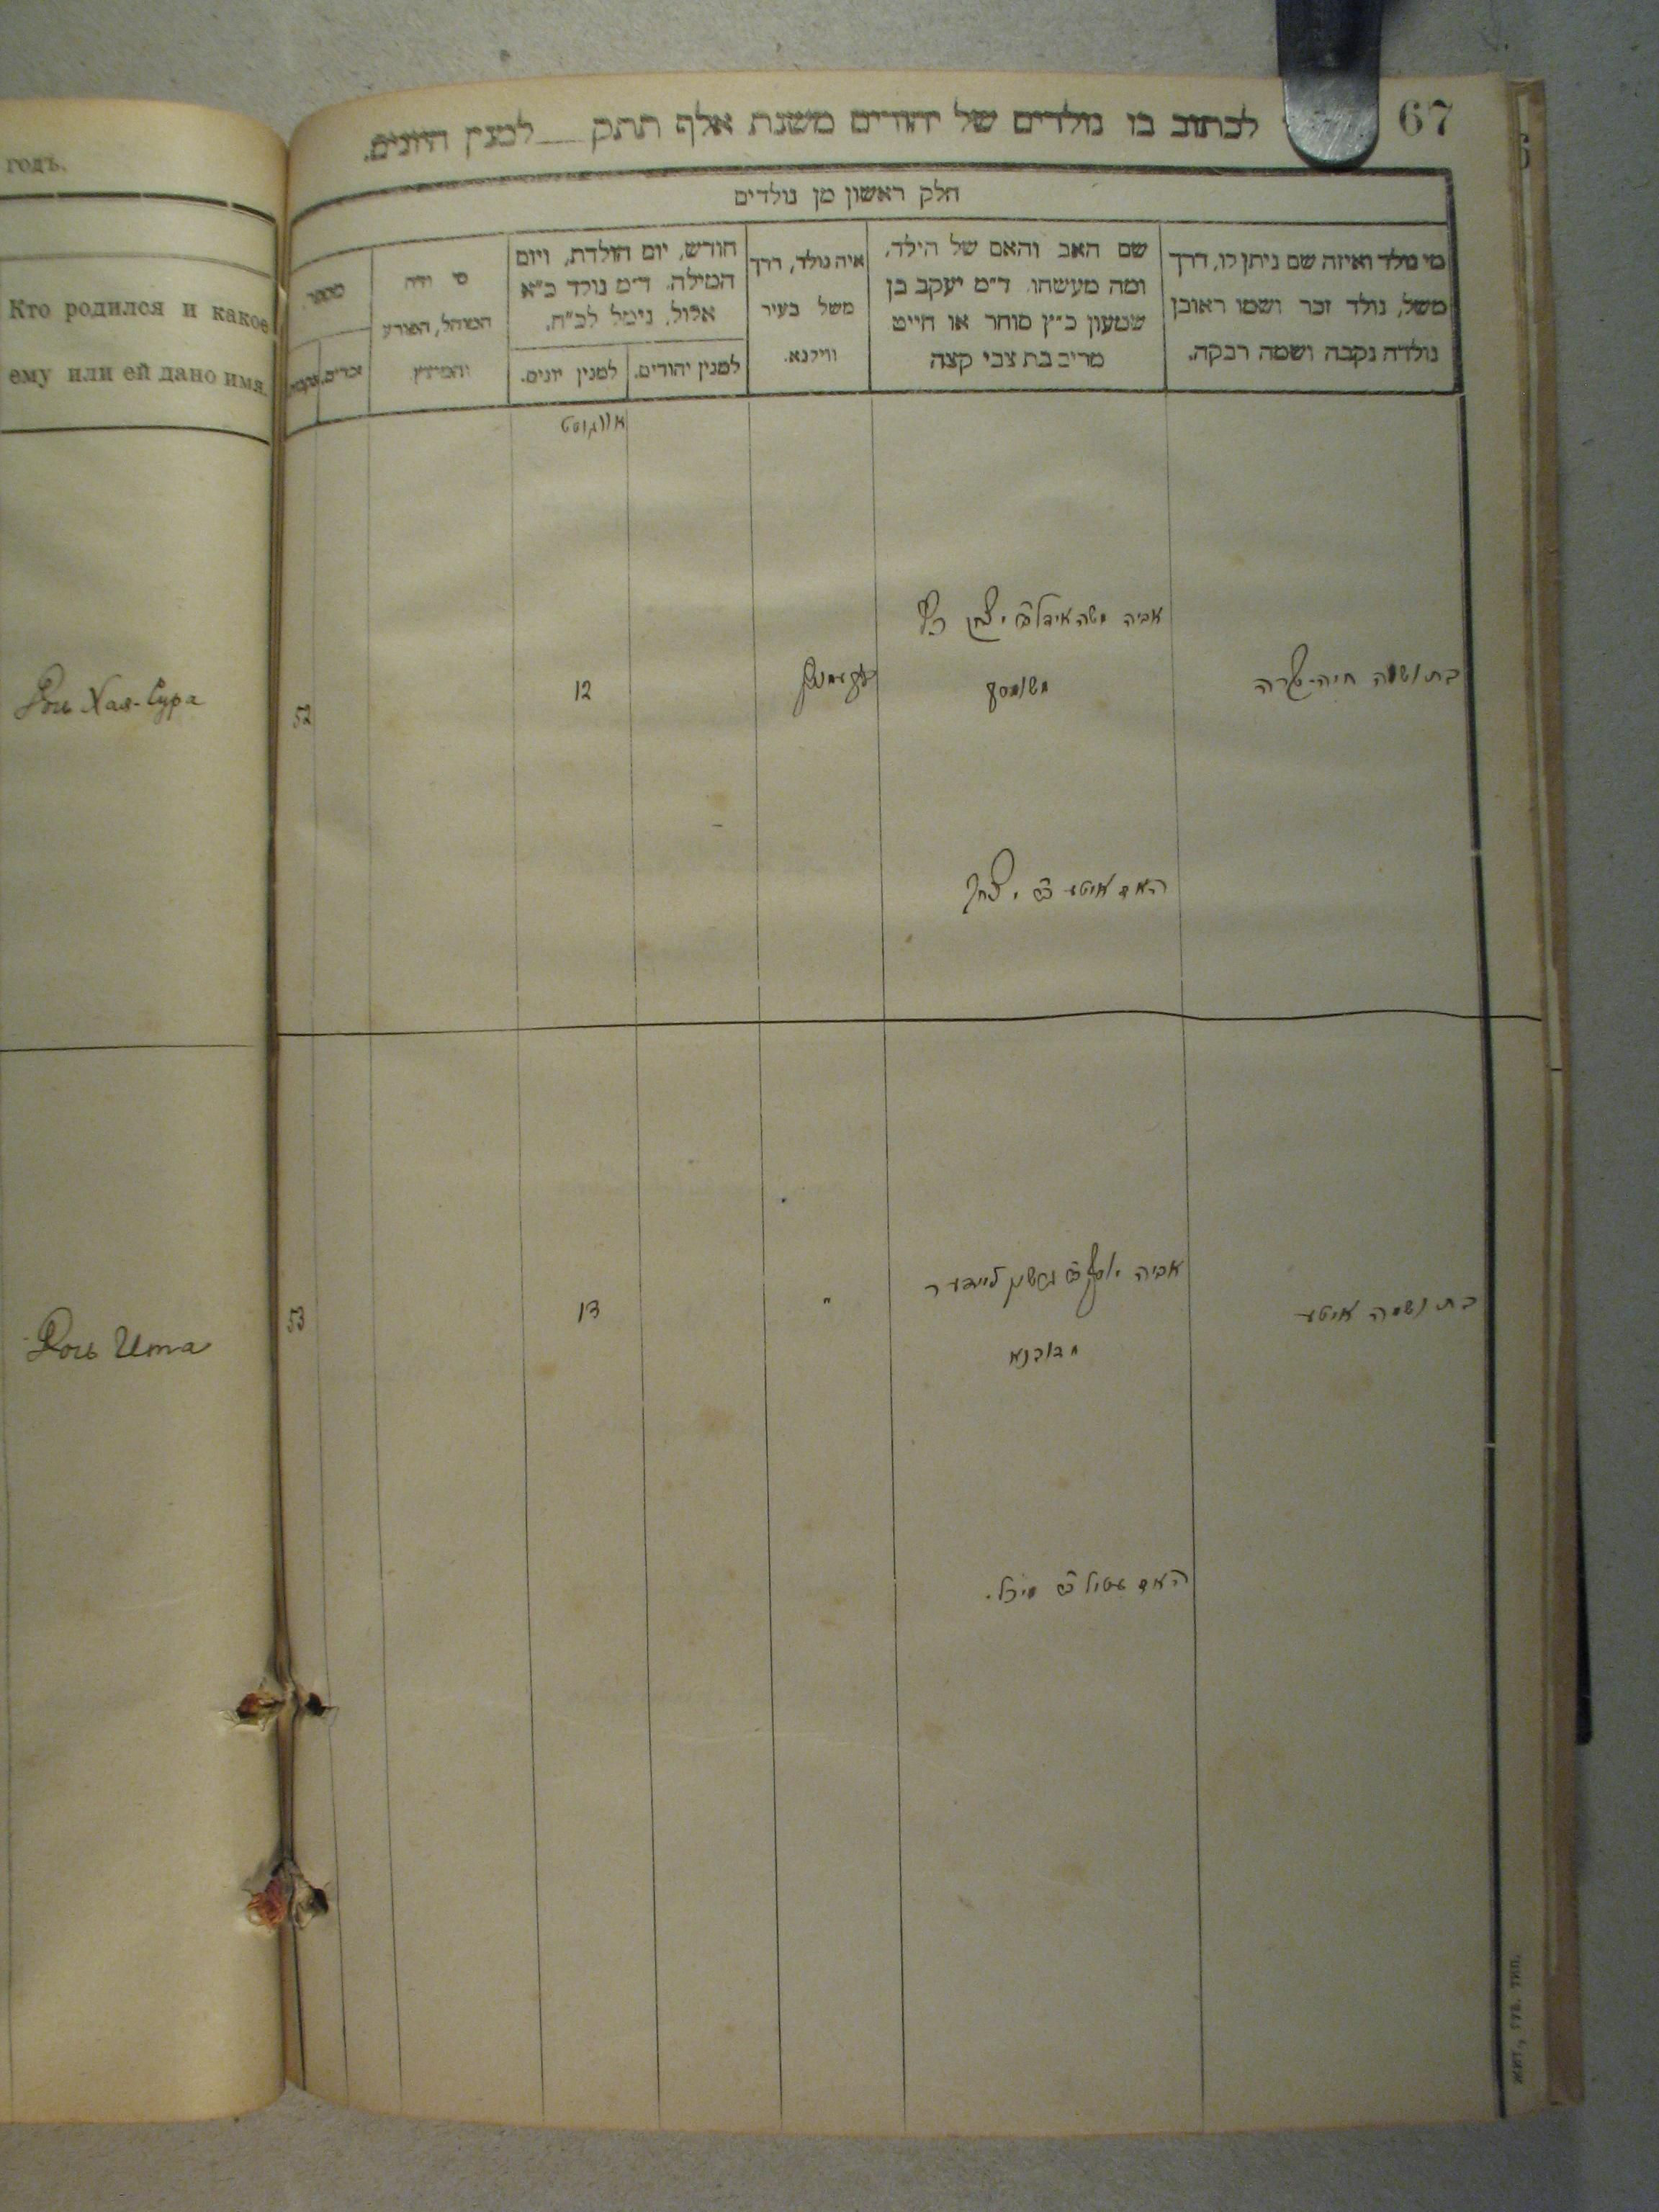 годъ.
Кто родился и какое
ему или ей дано имя.
Дочь Хая-Сура
Дочь Ита
67
לכתוב בו נולדים של יהודים משנת אלף תתק ___ למנין היונים.
חלק ראשון מן נולדים
מי נולד ואיזה שם ניתן לו, דרך
משל, נולד זכר ושמו ראובן
נולדה נקבה ושמה רבקה.
שם האב והאם של הילד,
ומה מעשהו. ד״מ יעקב בן
שמעון כ״ץ סוחר או חייט
מרים בת צבי קצה
איה נולד, דרך
משל בעיר
ווילנא.
חודש, יום הולדת, ויום
המילה. ד״מ נולד כ״א
אלול, נימל לכ״ח.
למנין יהודים.
למנין יונים.
מי היה
המוהל, הפורע
והמוצץ
מספר
זכרים.
נקבות
אווגוסט
בת ושמה חיה-שרה
אביה משה
12
52
האם איטע יצחק
בת ושמה איטע
אביה
"
13
53
האם
жит., губ. тип.